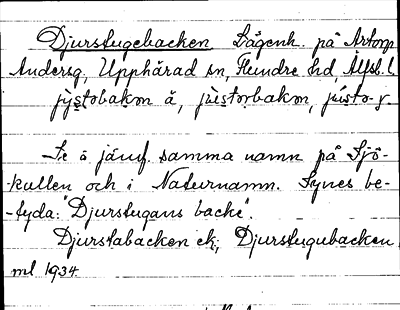 Djurstugebacken Lägenh. på Artorp
Andersg, Upphärad sn, Flundre hd, Älfsb. l.
jv̀stobakɷn å, jùstorbakɷn, jústo- j-
Se ö jämf. samma namn på Sjö-
kullen och i Naturnamn. Synes be-
-tyda: "Djurstugans backe".
Djurstabacken ek; Djurstugubacken
ml 1934.